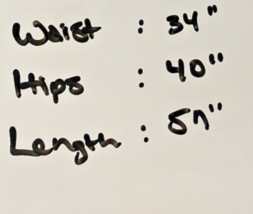 Waist : 34"
Hips : 40"
Length : 57"